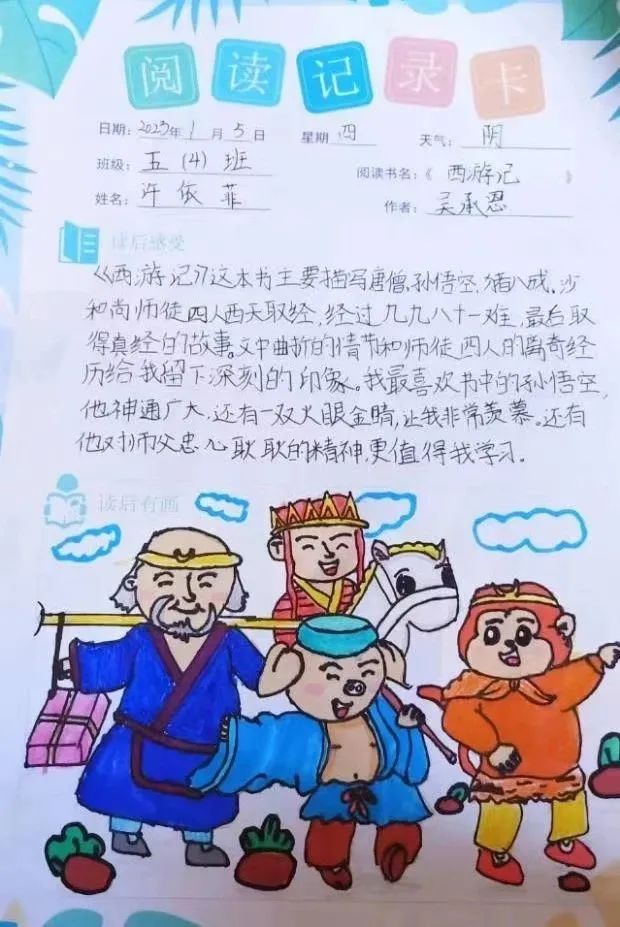 阅读记录卡
日期：2023年1月5日 星期四 天气：阴
班级：五（4）班 阅读书名：《西游记》
姓名：许依菲 作者：吴承恩
读后感受
《西游记》这本书主要描写唐僧、孙悟空、猪八戒、沙
和尚师徒四人西天取经，经过九九八十一难，最后取
得真经的故事。文中曲折的情节和师徒四人的离奇经
历给我留下深刻的印象。我最喜欢书中的孙悟空，
他神通广大，还有一双火眼金睛，让我非常羡慕。还有
他对师父忠心耿耿的精神，更值得我学习。
读后有画